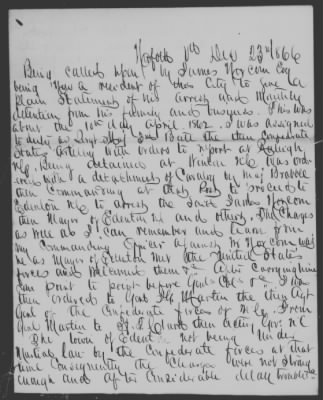 Norfolk Va Dec 23rd 1866
Being called upon by James Norcom Esq
being now a resident of this City to give a
plain Statement of his arrest and
detention from his family and business. This was
about the 10th day April 1862. I was assigned
to duty as Sergt 3rd the then Confederate
States Artillery with orders to report at Raleigh
NC. Being detained at Winton NC was ord-
ered with a detachment of Cavalry by Maj
then Commanding at that Post to proceed to
Edenton NC to arrest the said James Norcom
then Mayor of Edenton NC and others. The Charges
as well as I can remember and learn from
my Commanding Officer against Mr Norcom was
he as Mayor of Edenton met the United States
forces and welcomed them &c. After carrying him
from point to point before Genls &c &c I was
then ordered to Genl Martin the then Adjt
Genl of the Confederate forces of NC. From
Genl Martin to Clark then acting Gov. NC
The town of Edenton not being under
Martial law by the Confederate forces at that
time Consequently the Charges were not strong
enough and after Considerable delay